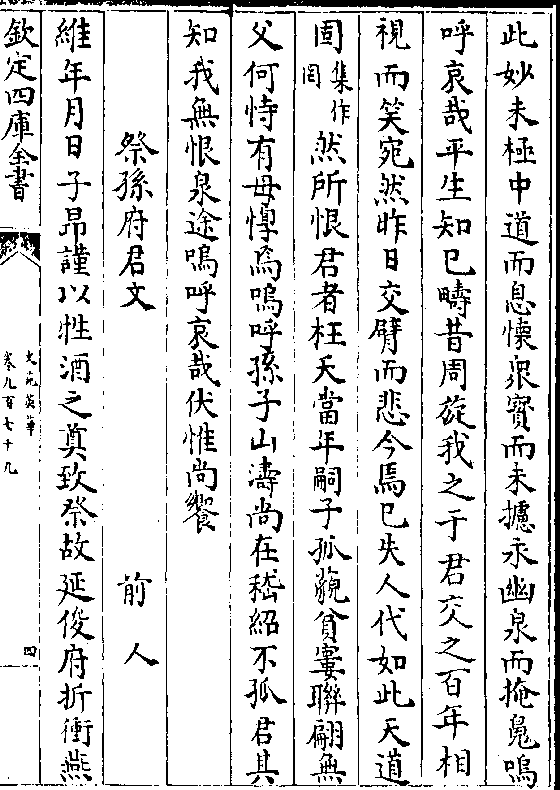 此妙未極中道而息懐衆寳而未攄永幽泉而掩䰟嗚
呼哀哉平生知已疇昔周旋我之于君交之百年相
視而笑宛然昨日交臂而悲今焉已失人代如此天道
固集作罔然所恨君者枉夭當年嗣子孤藐貧寠聨翩無
父何恃有母惸焉嗚呼孫子山濤尚在嵇紹不孤君其
知我無恨泉途嗚呼哀哉伏惟尚饗
祭孫府君文 前人
維年月日子昻謹以牲酒之奠致祭故延俊府折衝燕
欽定四庫全書
文苑英華
卷九百七十九
四